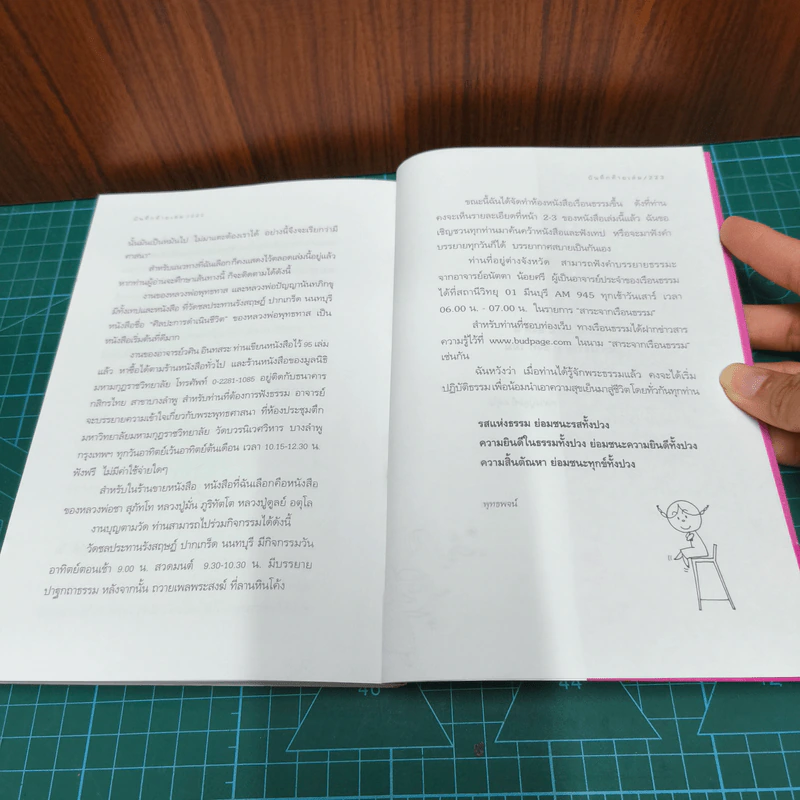 นั้นมันเป็นหมันไป ไม่มาแตะต้องเราได้ อย่างนี้จึงจะเรียกว่ามี
ศาสนา"
สำหรับแนวทางที่ฉันเลือก ก็คงแสดงไว้ตลอดเล่มนี้อยู่แล้ว
หากท่านผู้อ่านจะศึกษาเส้นทางนี้ ก็จะติดตามได้ดังนี้
งานของหลวงพ่อพุทธทาส และหลวงพ่อปัญญานันทภิกขุ
มีทั้งเทปและหนังสือ ที่วัดชลประทานรังสฤษฎ์ ปากเกร็ด นนทบุรี
หนังสือชื่อ "ศิลปะการดำเนินชีวิต" ของหลวงพ่อพุทธทาส เป็น
หนังสือเริ่มต้นที่ดีมาก
งานของอาจารย์วศิน อินทสระ ท่านเขียนหนังสือไว้ 95 เล่ม
แล้ว หาซื้อได้ตามร้านหนังสือทั่วไป และร้านหนังสือของมูลนิธิ
มหามกุฎราชวิทยาลัย โทรศัพท์ 0-2281-1085 อยู่ติดกับธนาคาร
กสิกรไทย สาขาบางลำพู สำหรับท่านที่ต้องการฟังธรรม อาจารย์
จะบรรยายความเข้าใจเกี่ยวกับพระพุทธศาสนา ที่ห้องประชุมตึก
มหาวิทยาลัยมหามกุฎราชวิทยาลัย วัดบวรนิเวศวิหาร บางลำพู
กรุงเทพฯ ทุกวันอาทิตย์เว้นอาทิตย์ต้นเดือน เวลา 10.15-12.30 น.
ฟังฟรี ไม่มีค่าใช้จ่ายใดๆ
สำหรับในร้านขายหนังสือ หนังสือที่ฉันเลือกคือหนังสือ
ของหลวงพ่อชา สุภัทโท หลวงปู่มั่น ภูริทัตโต หลวงปู่ดูลย์ อตุโล
งานบุญตามวัด ท่านสามารถไปร่วมกิจกรรมได้ดังนี้
วัดชลประทานรังสฤษฎ์ ปากเกร็ด นนทบุรี มีกิจกรรมวัน
อาทิตย์ตอนเช้า 9.00 น. สวดมนต์ 9.30-10.30 น. มีบรรยาย
ปาฐกถาธรรม หลังจากนั้น ถวายเพลพระสงฆ์ ที่ลานหินโค้ง
ขณะนี้ฉันได้จัดทำห้องหนังสือเรือนธรรมขึ้น ดังที่ท่าน
คงจะเห็นรายละเอียดที่หน้า 2-3 ของหนังสือเล่มนี้แล้ว ฉันขอ
เชิญชวนทุกท่านมาค้นคว้าหนังสือและฟังเทป หรือจะมาฟังคำ
บรรยายทุกวันก็ได้ บรรยากาศสบายเป็นกันเอง
ท่านที่อยู่ต่างจังหวัด สามารถฟังคำบรรยายธรรมะ
จากอาจารย์อนัตตา น้อยศรี ผู้เป็นอาจารย์ประจำของเรือนธรรม
ได้ที่สถานีวิทยุ 01 มีนบุรี AM 945 ทุกเช้าวันเสาร์ เวลา
06.00 น. - 07.00 น. ในรายการ "สาระจากเรือนธรรม"
สำหรับท่านที่ชอบท่องเว็บ ทางเรือนธรรมได้ฝากข่าวสาร
ความรู้ไว้ที่ www.budpage.com ในนาม "สาระจากเรือนธรรม"
เช่นกัน
ฉันหวังว่า เมื่อท่านได้รู้จักพระธรรมแล้ว คงจะได้เริ่ม
ปฏิบัติธรรม เพื่อน้อมนำเอาความสุขเย็นมาสู่ชีวิตโดยทั่วกันทุกท่าน
รสแห่งธรรม ย่อมชนะรสทั้งปวง
ความยินดีในธรรมทั้งปวง ย่อมชนะความยินดีทั้งปวง
ความสิ้นตัณหา ย่อมชนะทุกข์ทั้งปวง
พุทธพจน์
46
44